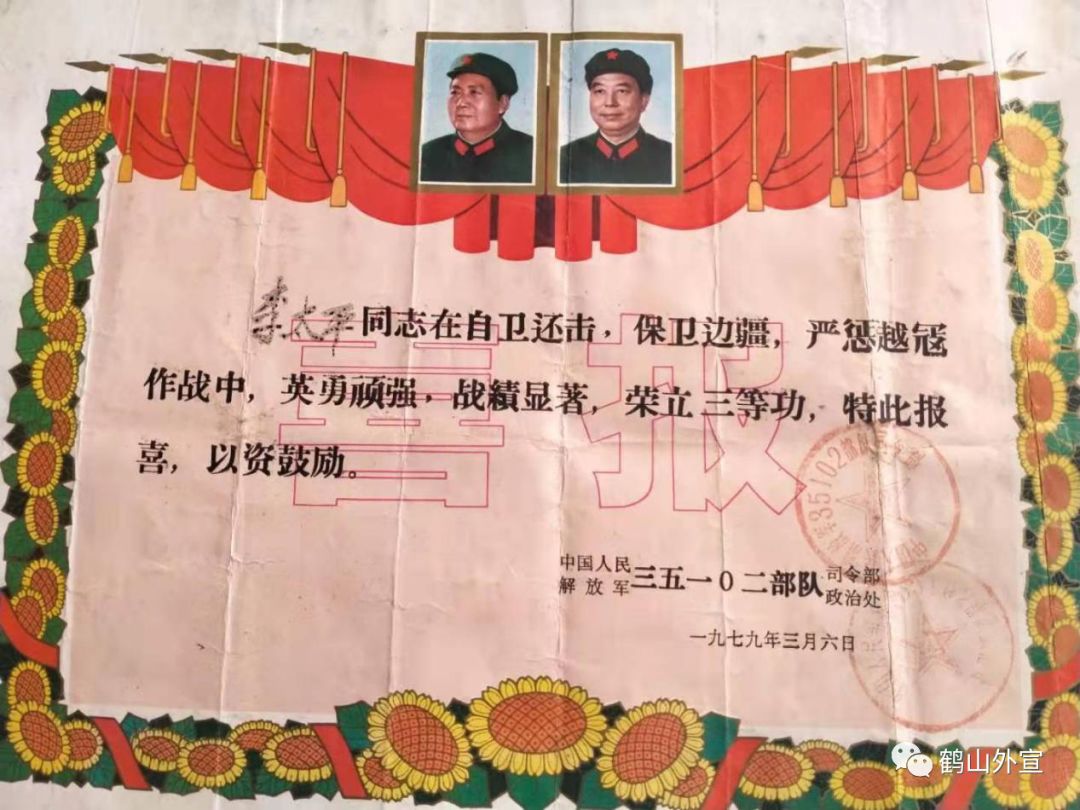 李太平同志在自卫还击，保卫边疆，严惩越寇
作战中，英勇顽强，战績显著，荣立三等功，特此报
喜，以资鼓励。
喜报
中国人民
解放军三五一0二部队司令部
政治处
一九七九年三月六日
35102部队
鹤山外宣